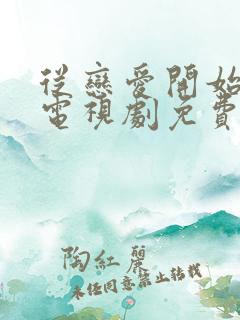 從戀愛開始
電視劇免費
陶紅麗
未经同意禁止转载